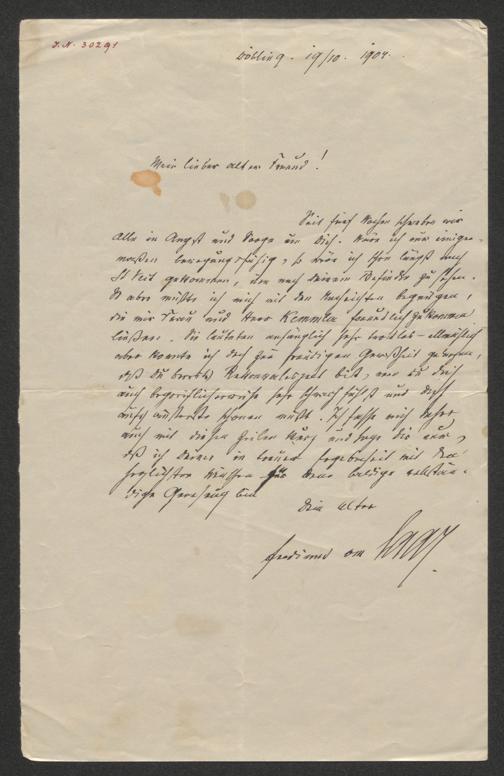 J.N. 30291
Döbling. 19/10. 1904.
Mein lieber alter Freund!
Seit fünf Wochen schweben wir
Alle in Angst und Sorge um Dich. Wäre ich nur einiger-
maßen bewegungsfähig, so wäre ich schon längst nach
St Veit gekommen, um nach deinem Befinden zu sehen.
So aber mußte ich mich mit den Nachrichten begnügen,
die mir Frau und Herr Kemmler freundlich zukommen
ließen. Sie lauteten anfänglich sehr trostlos – allmählich
aber konnte ich doch zur freudigen Gewißheit gelangen,
daß Du bereits Rekonvaleszent bist, wenn du dich
auch begreiflicherweise sehr schwach fühlst und dich
aufs äußerste schonen mußt. Ich fasse mich daher
auch mit diesen Zeilen kurz und sage dir nur,
daß ich deiner in treuer Ergebenheit mit den
herzlichsten Wünschen für deine baldige vollstän-
dige Genesung bin
Dein alter
Ferdinand von Saar.